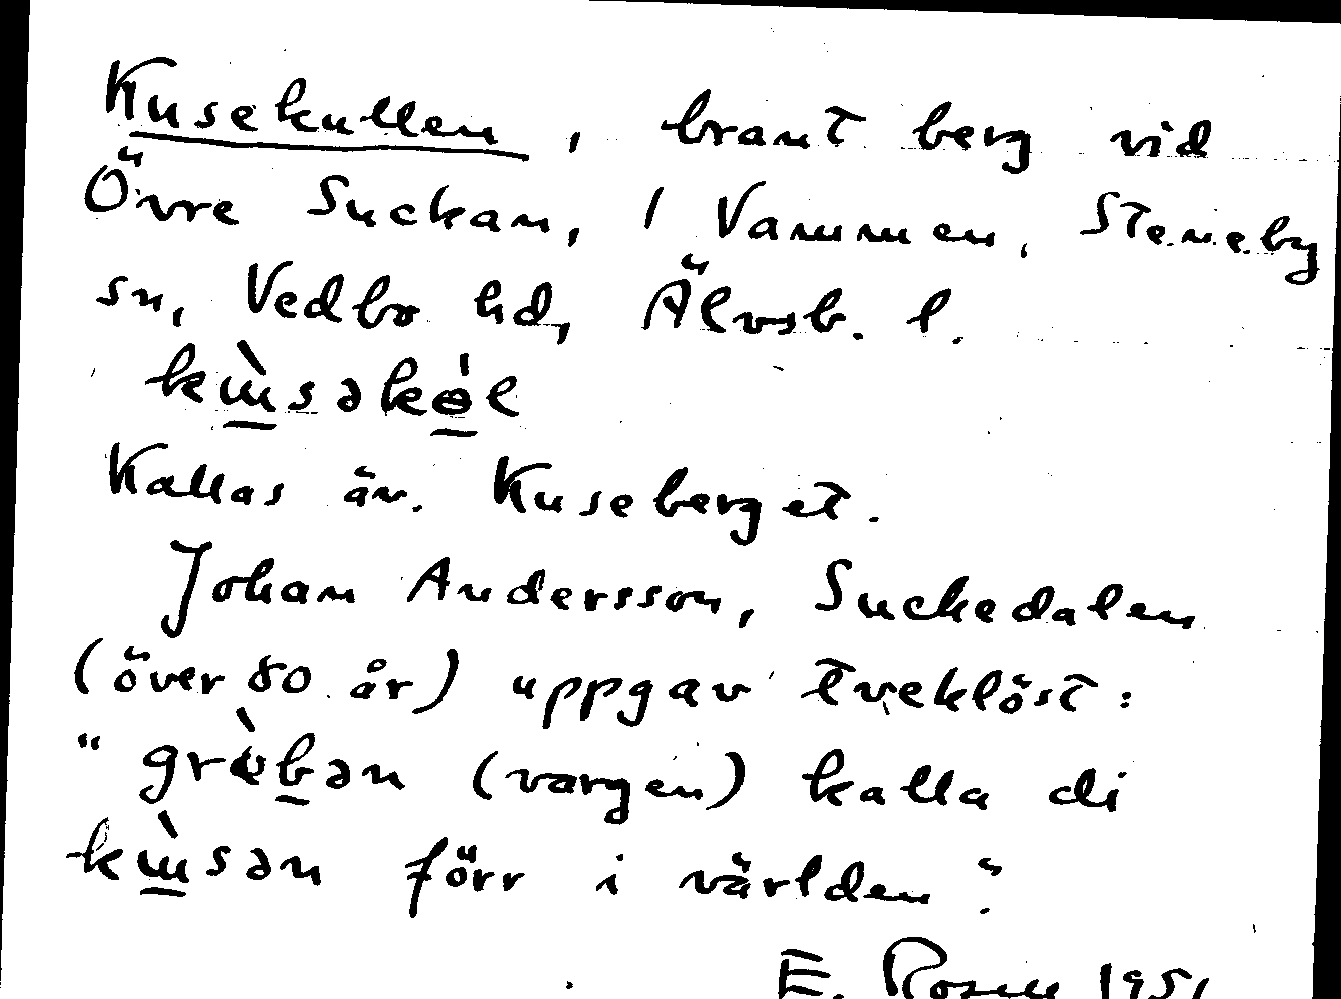 Kusekullen, brant berg vid
Övre Suckan, 1 Vammen, Steneby
sn, Vedbo hd, Älvsb. l.
kɯ̀səkɵ̀l
Kallas äv. Kuseberget.
Johan Andersson, Suckedalen
(över 80 år) uppgav tveklöst:
"grὲbən (vargen) kalla di
kɯ̀sən förr i världen".
E. Rosell 1951